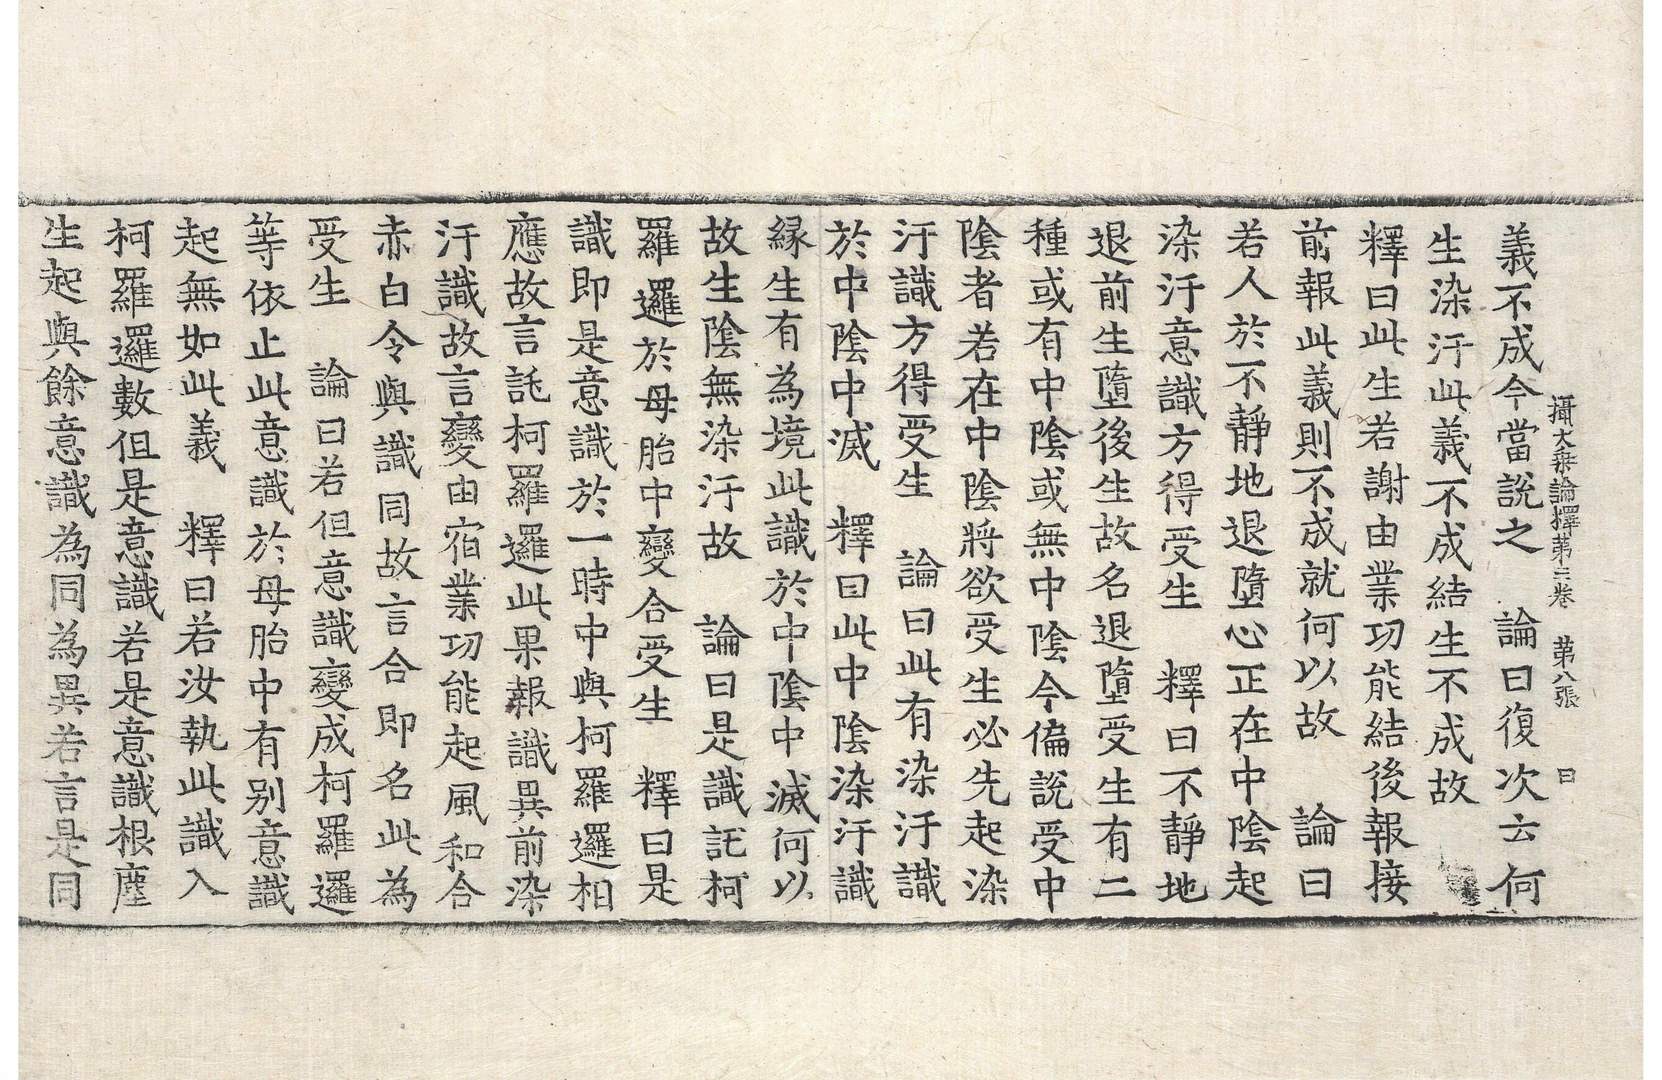 攝大乗論釋第二卷 第八張 曰
義不成今當說之 論曰復次云何
生染汙此義不成結生不成故
釋曰此生若謝由業功能結後報接
前報此義則不成就何以故 論曰
若人於不靜地退墮心正在中陰起
染汙意識方得受生 釋曰不靜地
退前生墮後生故名退墮受生有二
種或有中陰或無中陰今偏說受中
陰者若在中陰將欲受生必先起染
汙識方得受生 論曰此有染汙識
於中陰中滅 釋曰此中陰染汙識
緣生有為境此識於中陰中滅何以
故生陰無染汙故 論曰是識託柯
羅邏於母胎中變合受生 釋曰是
識即是意識於一時中與柯羅邏相
應故言託柯羅邏此果報識異前染
汙識故言變由宿業功能起風和合
赤白令與識同故言合即名此為
受生 論曰若但意識變成柯羅邏
等依止此意識於母胎中有别意識
起無如此義 釋曰若汝執此識入
柯羅邏數但是意識若是意識根塵
生起與餘意識為同為異若言是同